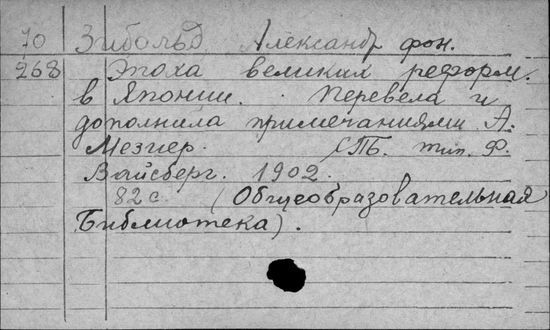 70 Зибольд Александр фон.
268 Эпоха великих реформ.
в Японии. Перевела и
дополнила примечаниями А.
Мезиер. СПБ. тип. Ф.
Вайсберг. 1902.
82 с. (Общеобразовательная
Библиотека).